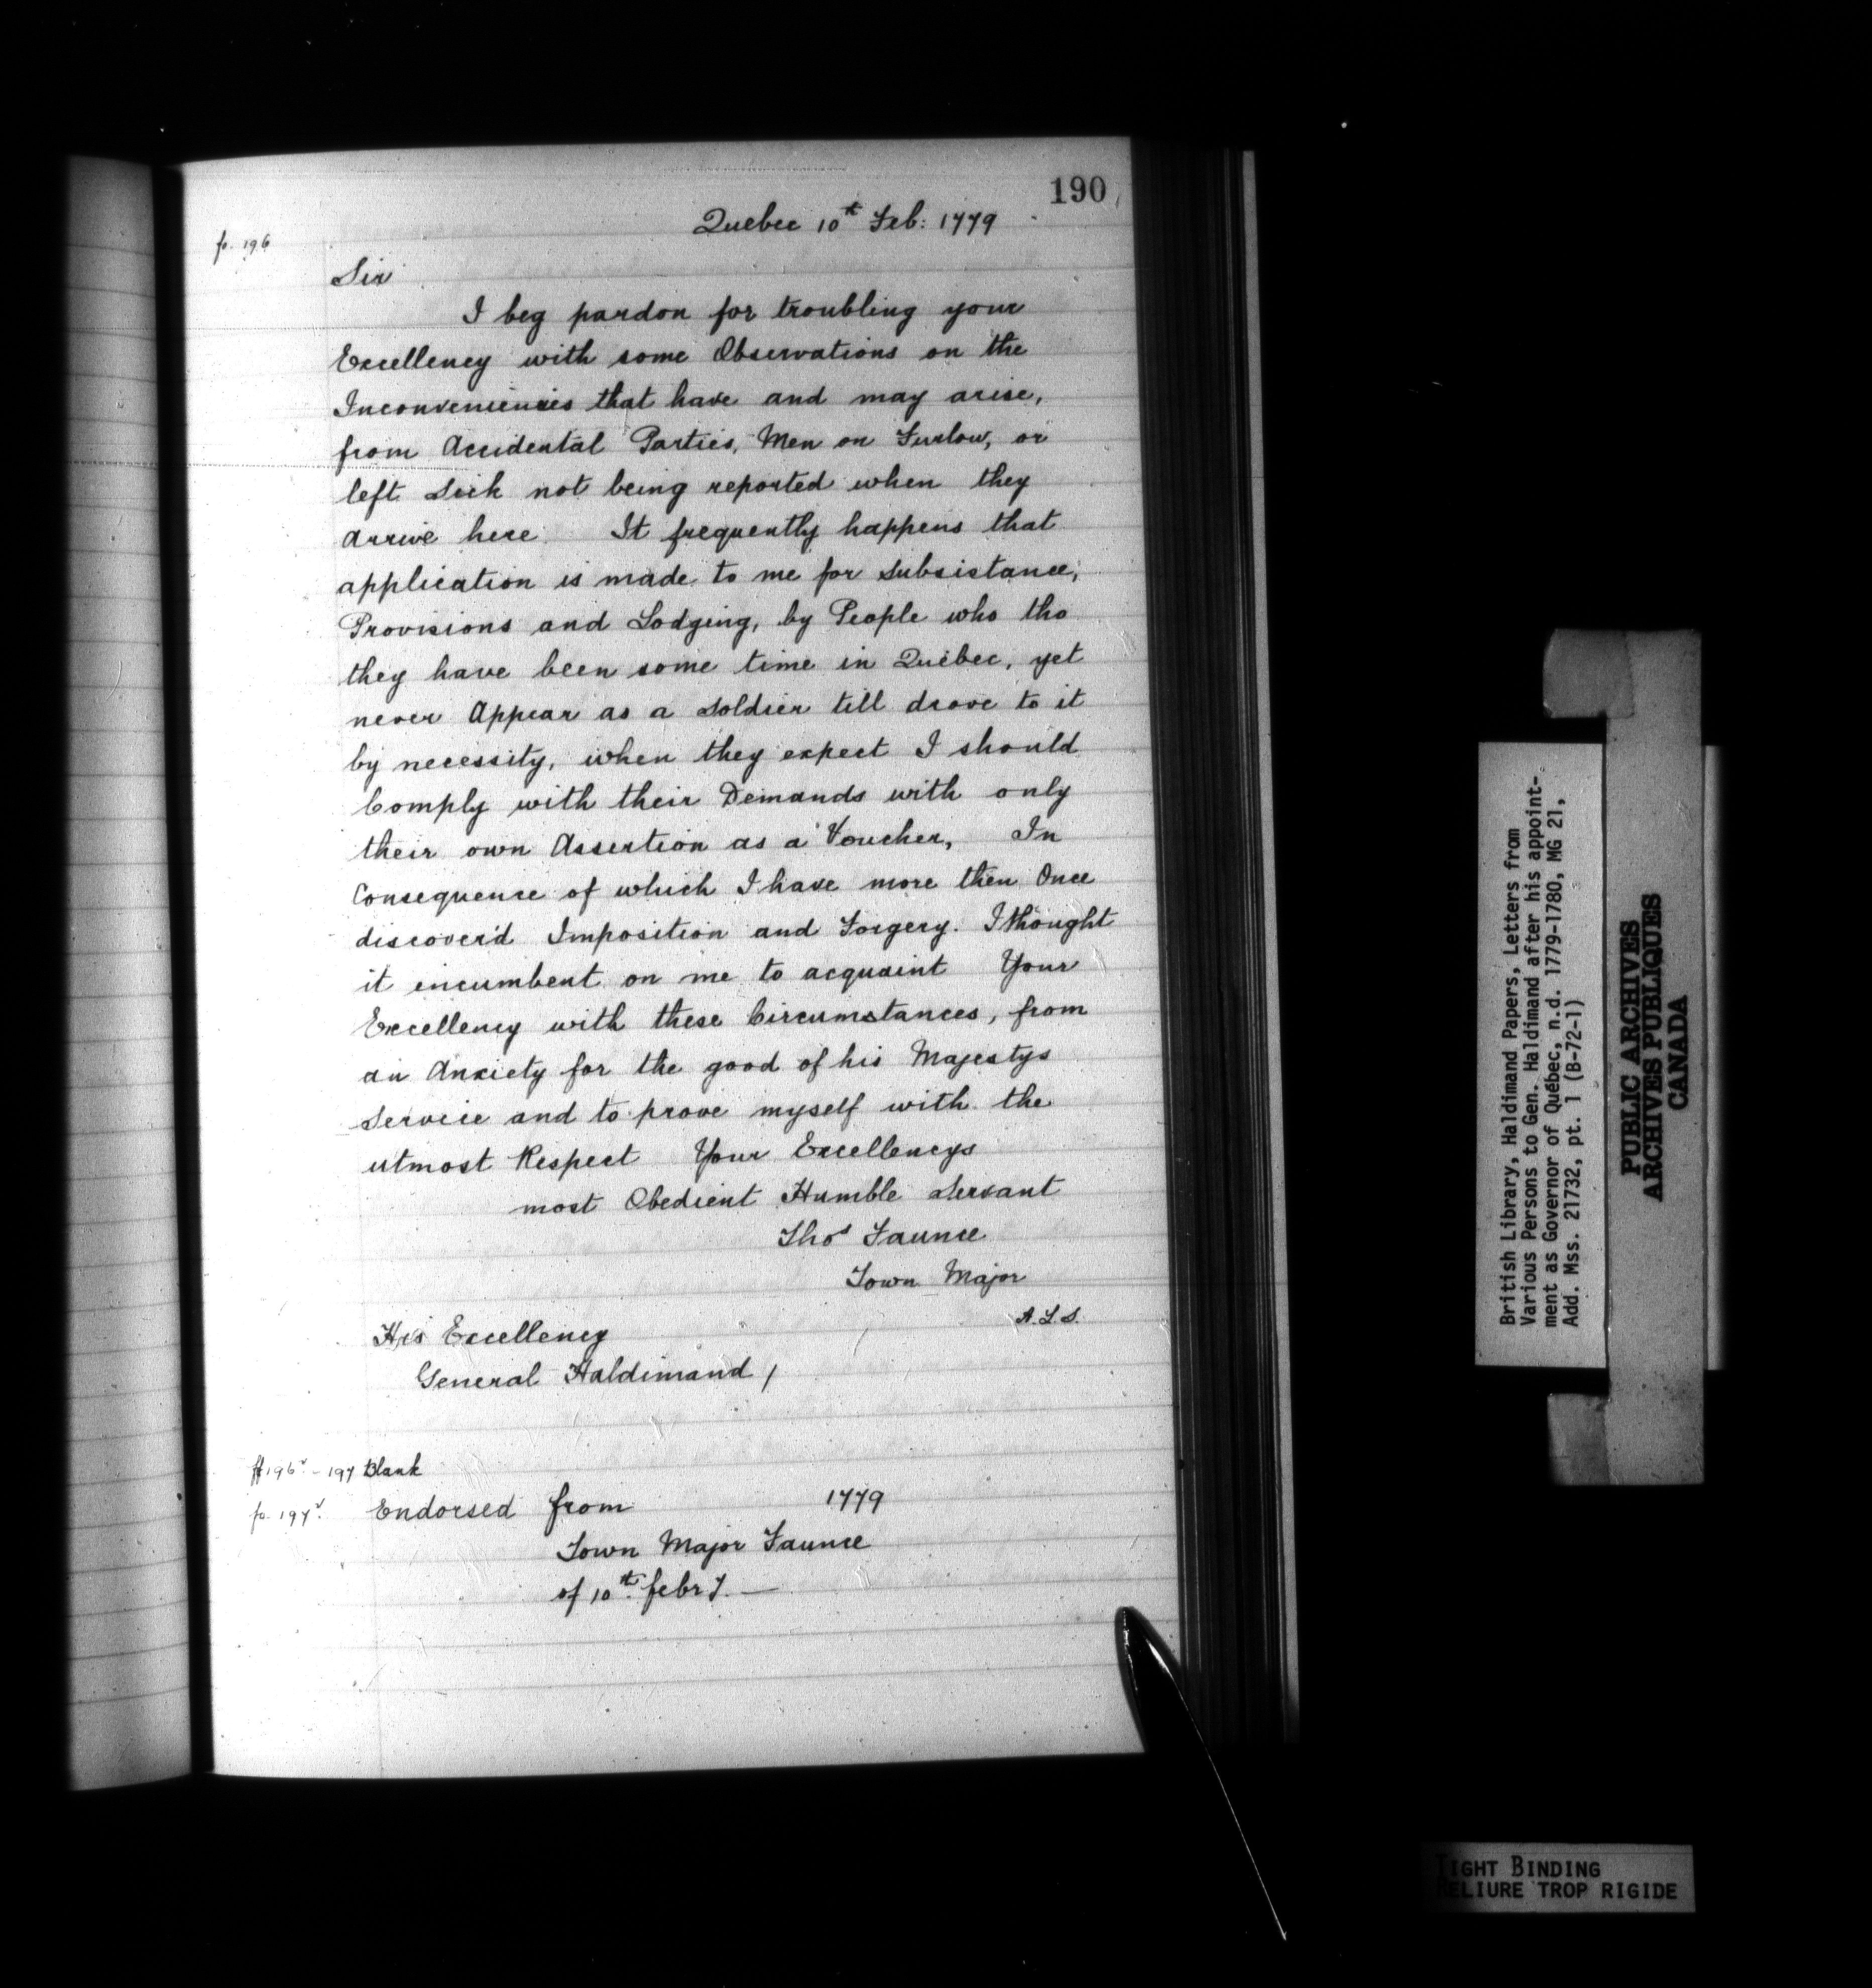 190
Quebec 10th Feb: 1779
fo. 196
Sir
I beg pardon for troubling your
Excellency with some Observations on the
Inconveniencies that have and may arise,
from Accidental Parties, Men on Furlow, or
left Sick not being reported when they
Arrive here. It frequently happens that
application is made to me for Subsistance,
Provisions and Lodging, by People who tho
they have been some time in Quebec, yet
never Appear as a Soldier till drove to it
by necessity, when they expect I should
Comply with their Demands with only
their own Assertion as a Voucher, In
Consequence of which I have more then Once
discover'd Imposition and Forgery. I thought
it incumbent on me to acquaint Your
Excellency with these Circumstances, from
an Anxiety for the good of his Majestys
Service and to prove myself with the
utmost Respect Your Excellencys
most Obedient Humble Servant
Thos Faunce
Town Major
A.L.S.
His Excellency
General Haldimand /
ff 196v - 197 Blank
fo. 197v. Endorsed from 1779
Town Major Faunce
of 10th. febry. —
British Library, Haldimand Papers, Letters from
Various Persons to Gen. Haldimand after his appoint-
ment as Governor of Québec, n.d. 1779-1780, MG 21,
Add. Mss. 21732, pt. 1 (B-72-1)
PUBLIC ARCHIVES
ARCHIVES PUBLIQUES
CANADA
TIGHT BINDING
RELIURE TROP RIGIDE